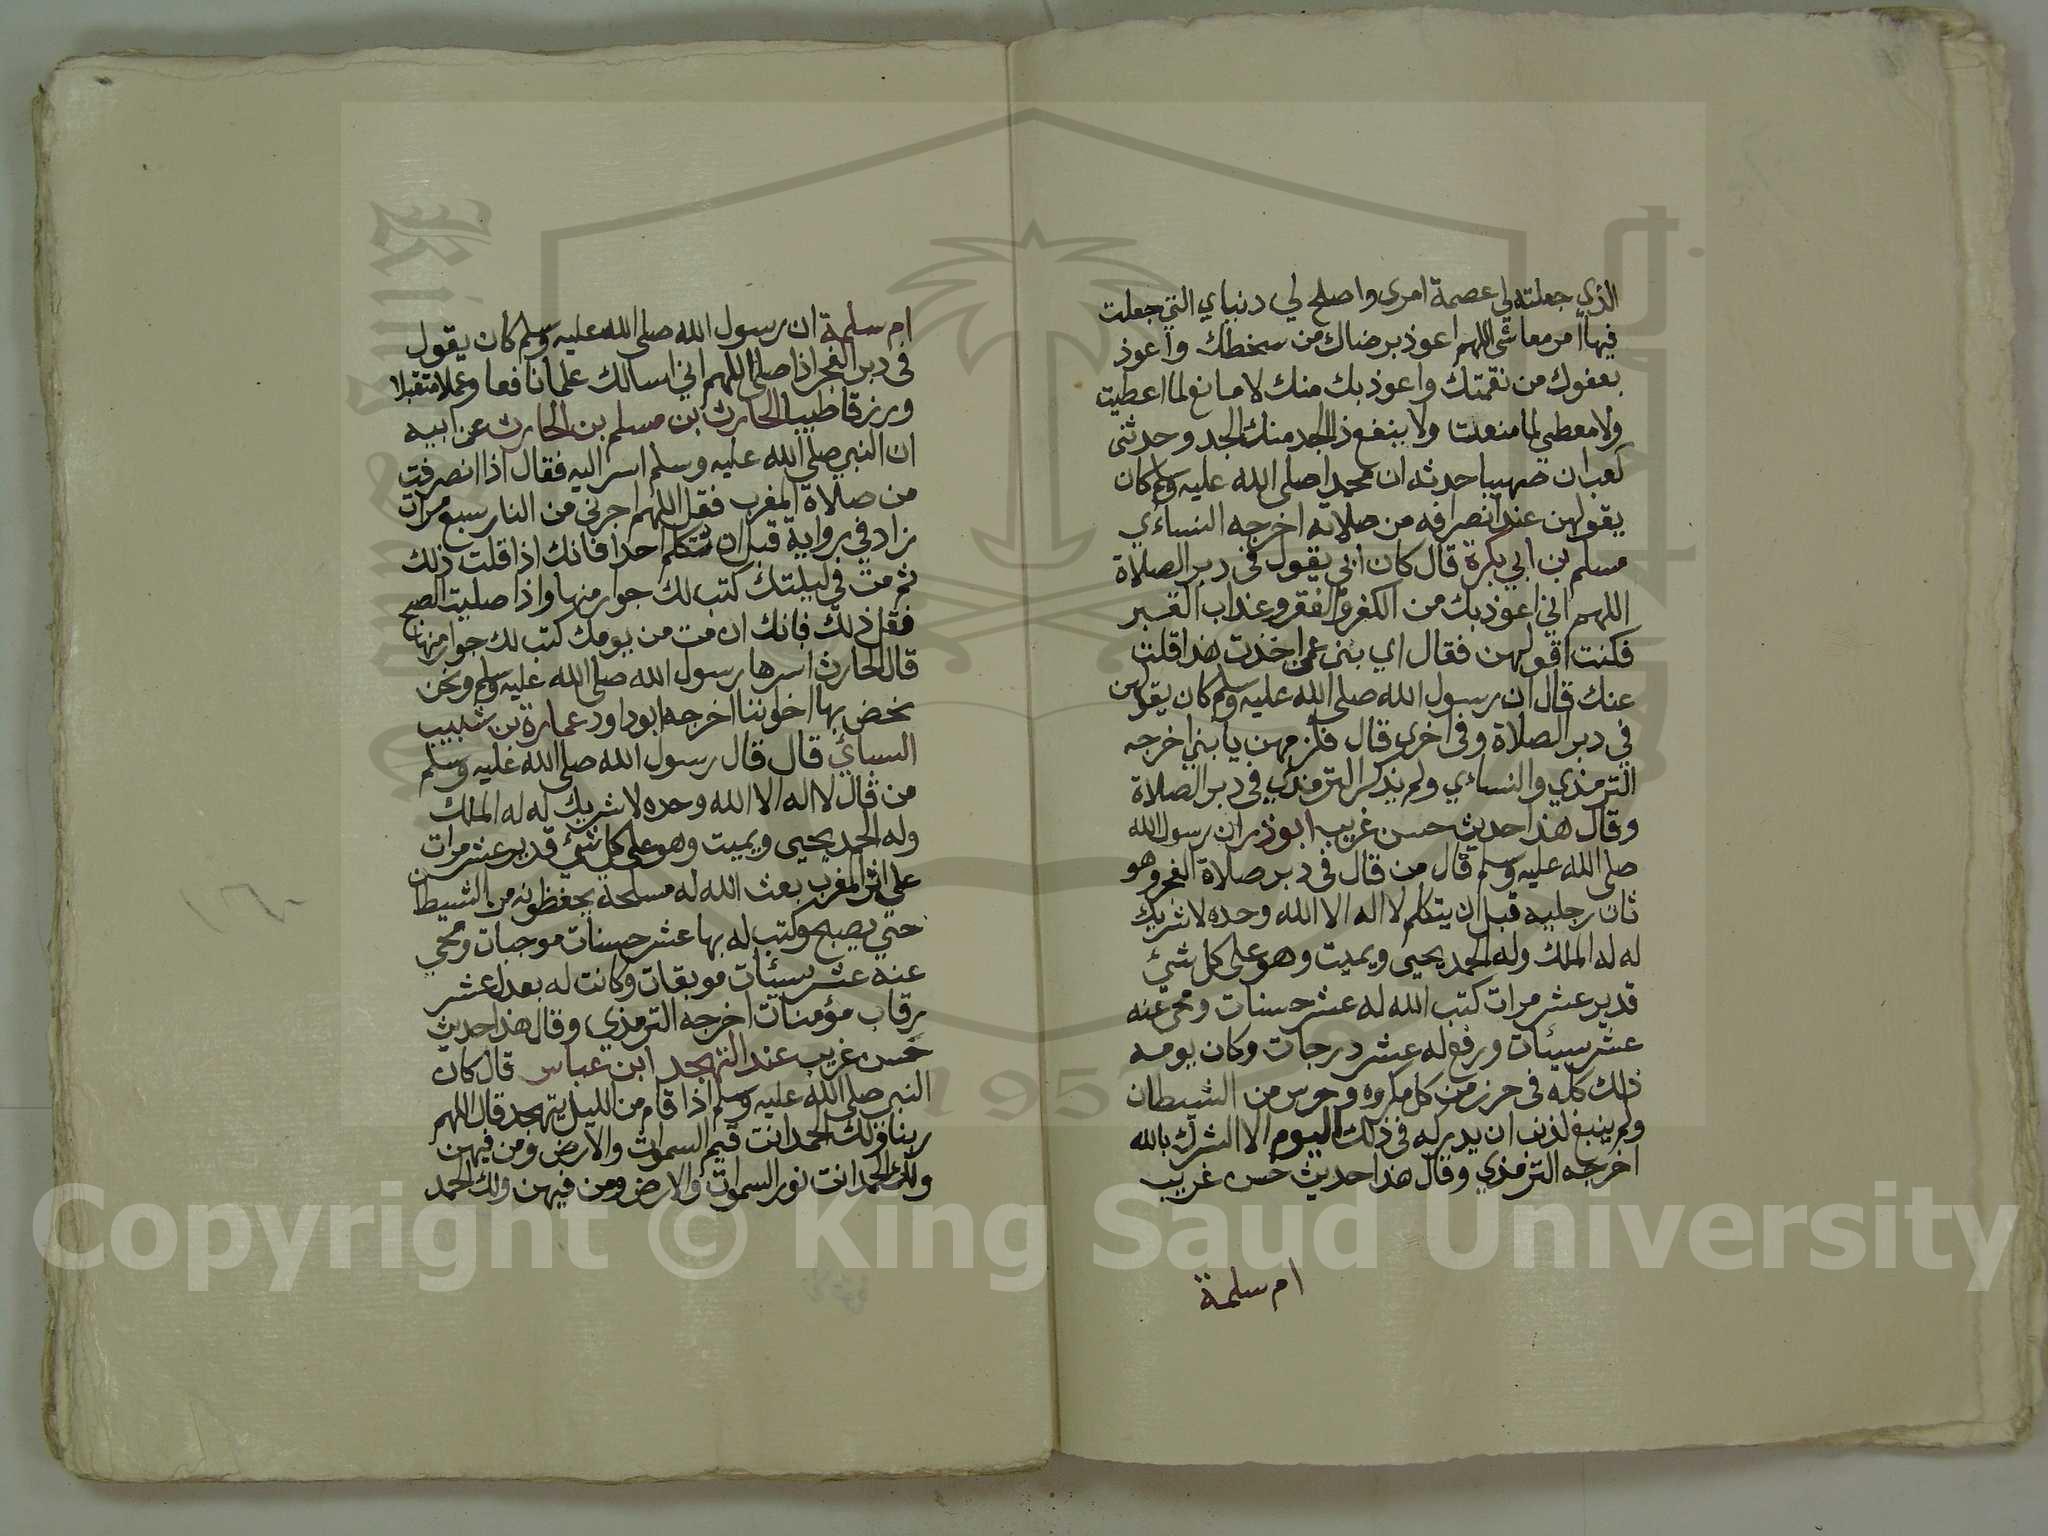 الذي جعلته لي عصمة امري واصلح لي دنياي التي جعلت
فيها معاشي اللهم اعوذ برضاك من سخطك واعوذ
بعفوك من نقمتك واعوذ بك منك لا مانع لما اعطيت
ولا معطي لما منعت ولا ينفع ذا الجد منك الجد وحدثني
كعب ان صهيبا حدثه ان محمدا صلى الله عليه وسلم كان
يقولهن عند انصرافه من صلاته اخرجه النساءي
مسلم بن ابي بكرة قال كان ابي يقول في دبر الصلاة
اللهم اني اعوذ بك من الكفر والفقر وعذاب القبر
فكنت اقولهن فقال اي بني عمن اخذت هذا قلت
عنك قال ان رسول الله صلى الله عليه وسلم كان يقولهن
في دبر الصلاة وفي اخرى قال فالزمهن يا بني اخرجه
الترمذي والنساءي ولم يذكر الترمذي في دبر الصلاة
وقال هذا حديث حسن غريب ابو ذر ان رسول الله
صلى الله عليه وسلم قال من قال في دبر صلاة الفجر وهو
ثان رجليه قبل ان يتكلم لا اله الا الله وحده لا شريك
له له الملك وله الحمد يحيى ويميت وهو على كل شيئ
قدير عشر مرات كتب الله له عشر حسنات ومحى عنه
عشر سيئات ورفع له عشر درجات وكان يومه
ذلك كله في حرز من كل مكروه وحرس من الشيطان
ولم ينبغ لذنب ان يدركه في ذلك اليوم الا الشرك بالله
اخرجه الترمذي وقال هذا حديث حسن غريب
ام سلمة
ام سلمة ان رسول الله صلى الله عليه وسلم كان يقول
في دبر الفجر اذا صلى اللهم اني اسالك علما نافعا وعملا متقبلا
ورزقا طيبا الحارث بن مسلم بن الحارث عن ابيه
ان النبي صلى الله عليه وسلم اسر اليه فقال اذا انصرفت
من صلاة المغرب فقل اللهم اجرني من النار سبع مرات
زاد في رواية قبل ان تتكلم احدا فانك اذا قلت ذلك
ثم مت في ليلتك كتب لك جوار منها واذا صليت الصبح
فقل ذلك فانك ان مت من يومك كتب لك جوار منها
قال الحارث اسرها رسول الله صلى الله عليه وسلم ونحن
نخص بها اخواننا اخرجه ابو داود عمارة بن شبيب
السبائي قال قال رسول الله صلى الله عليه وسلم
من قال لا اله الا الله وحده لا شريك له له الملك
وله الحمد يحيى ويميت وهو على كل شيئ قدير عشر مرات
على اثر المغرب بعث الله له مسلحة يحفظونه من الشيطان
حتي يصبح وكتب له بها عشر حسنات موجبات ومحي
عنه عشر سيئات موبقات وكانت له بعدل عشر
رقاب مؤمنات اخرجه الترمذي وقال هذا حديث
حسن غريب عند التهجد ابن عباس قال كان
النبي صلى الله عليه وسلم اذا قام من الليل يتهجد قال اللهم
ربنا لك الحمد انت قيم السموات والارض ومن فيهن
ولك الحمد انت نور السموات والارض ومن فيهن ولك الحمد
Copyright © King Saud University
1957